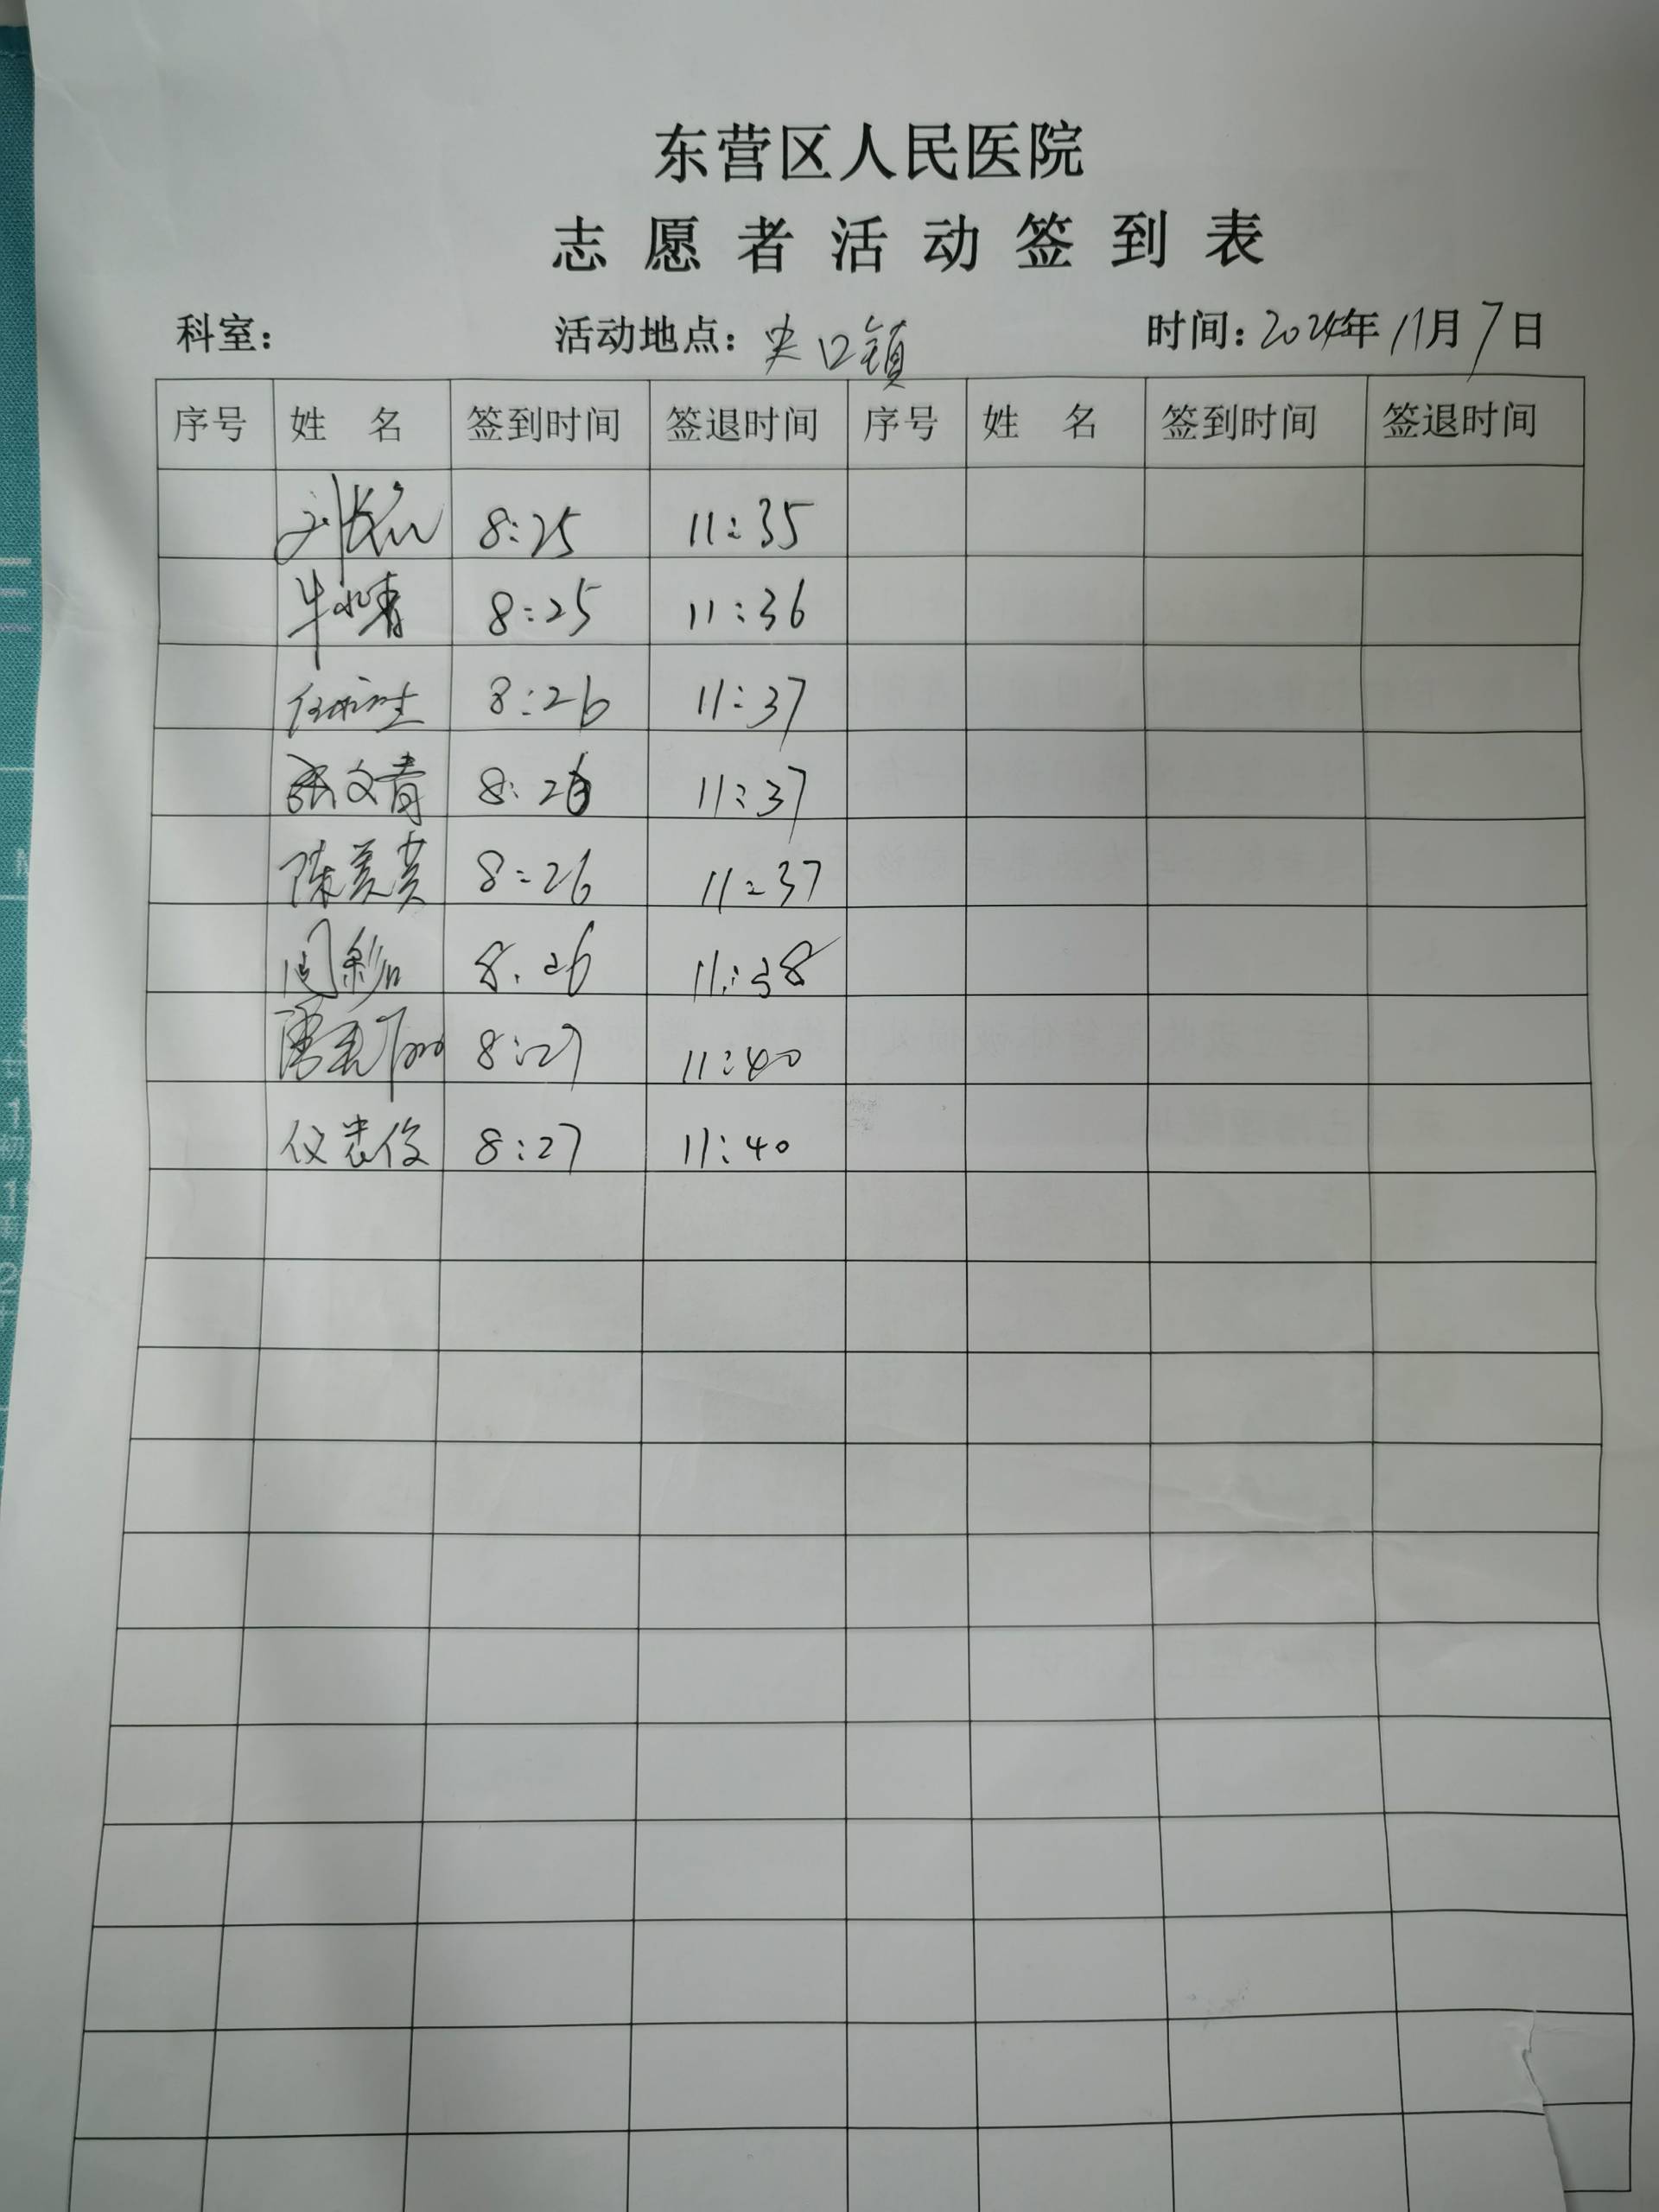 东营区人民医院
志愿者活动签到表
科室： 活动地点：史口镇 时间：2024年11月7日
序号 姓 名 签到时间 签退时间 序号 姓 名 签到时间 签退时间
8:25 11:35
8:25 11:36
8:26 11:37
张文青 8:26 11:37
陈美英 8:26 11:37
8:26 11:38
8:27 11:40
8:27 11:40